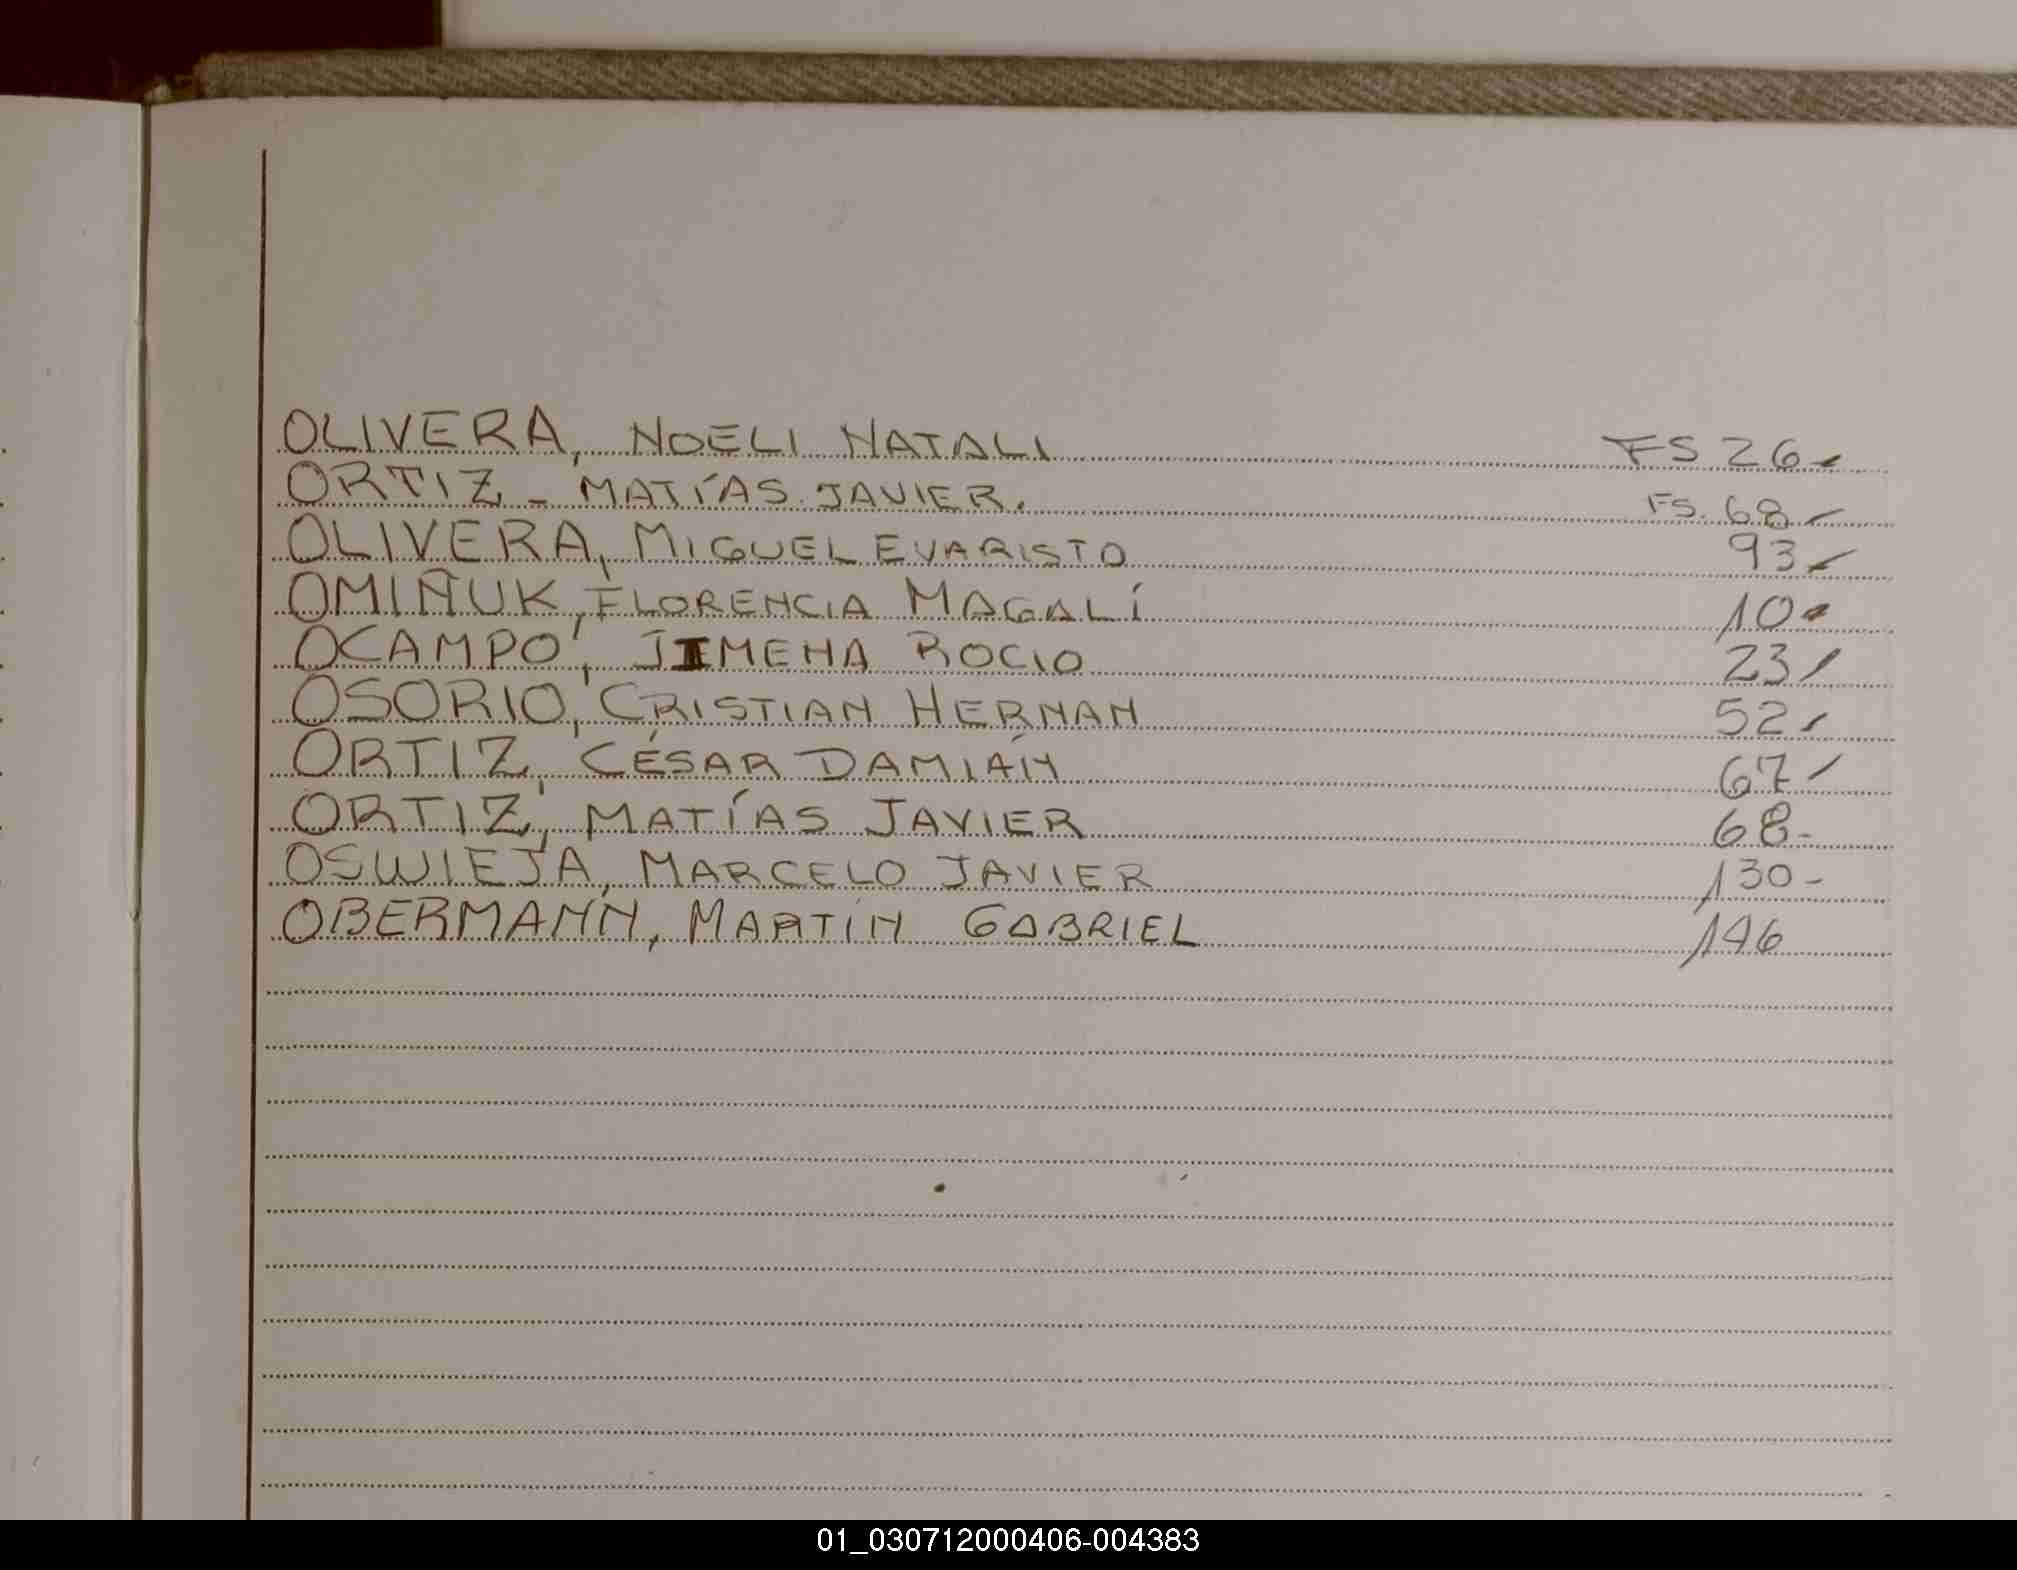 OLIVERA, NOELI NATALI FS 26-
ORTIZ - MATÍAS JAVIER. FS. 68-
OLIVERA, MIGUEL EVARISTO 93-
OMIÑUK, FLORENCIA MAGALÍ 10-
OCAMPO, JIMENA ROCIO 23-
OSORIO, CRISTIAN HERNAN 52-
ORTIZ, CÉSAR DAMIÁN 67-
ORTIZ, MATÍAS JAVIER 68-
OSWIEJA, MARCELO JAVIER 130-
OBERMANN, MARTÍN GABRIEL
01_030712000406-004383